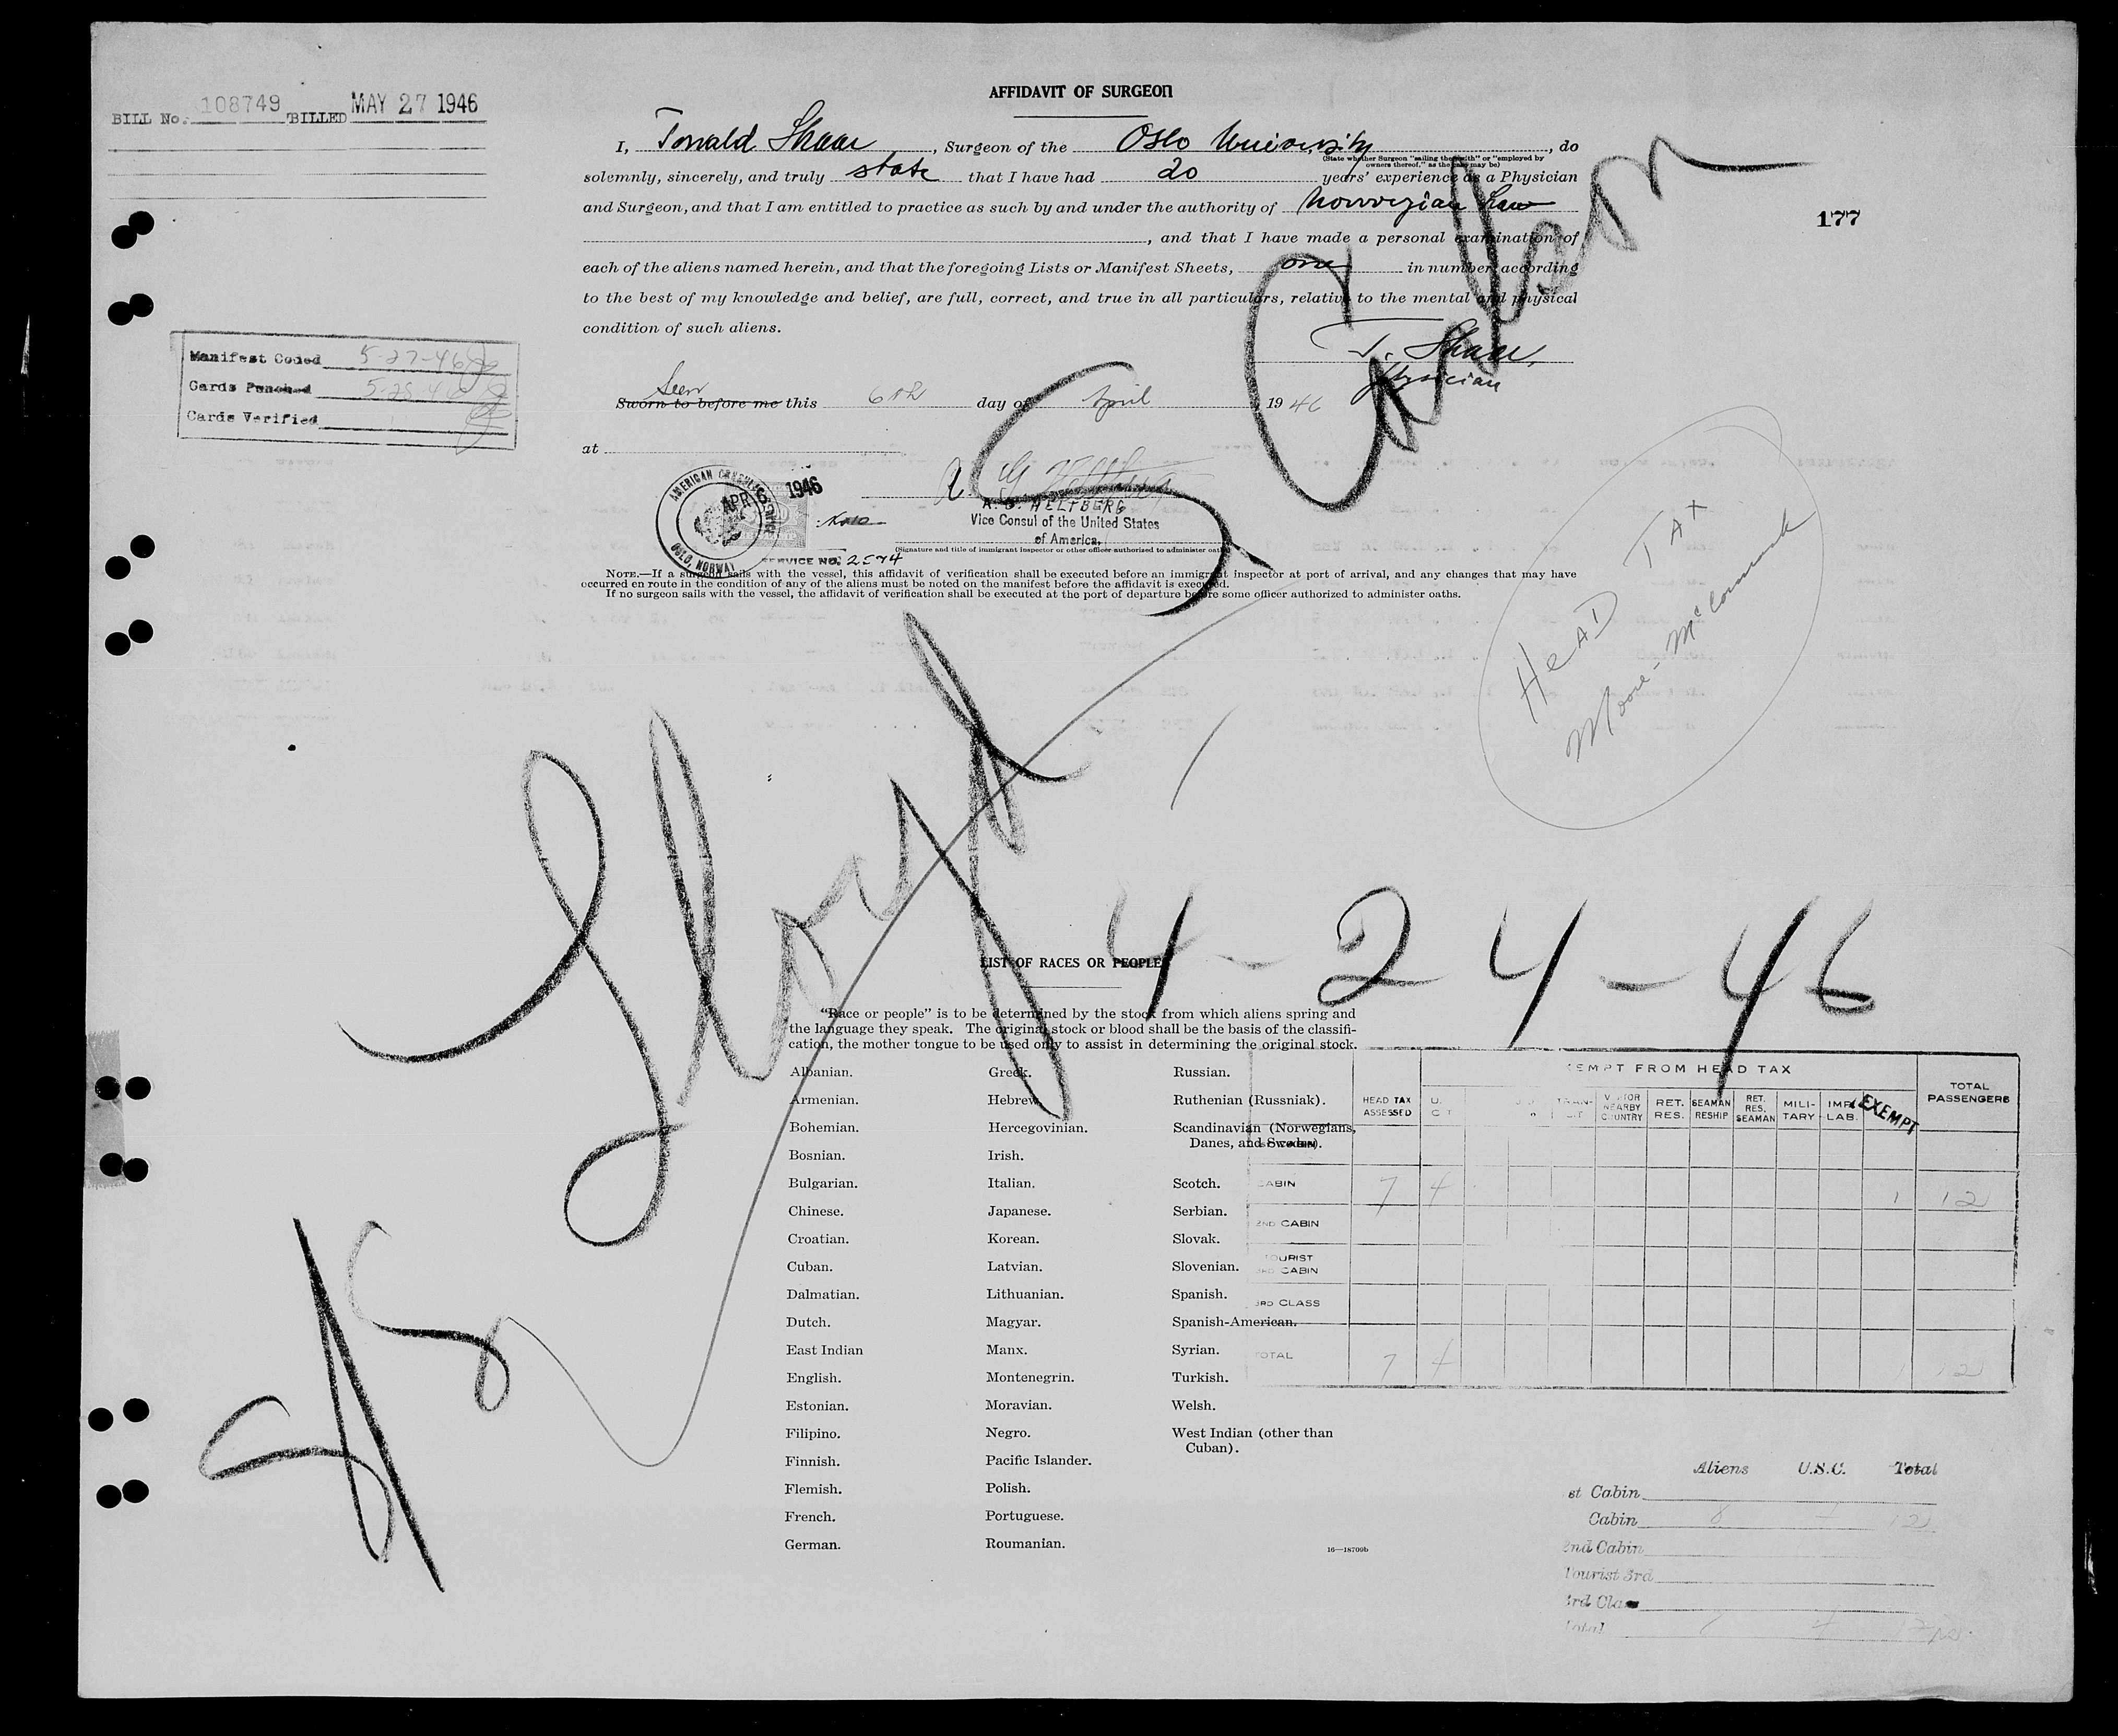 BILL No. 108749 BILLED MAY 27 1946
AFFIDAVIT OF SURGEON
I, Tonald , Surgeon of the Oslo University, do
(State whether Surgeon "sailing therewith" or "employed by
owners thereof," as the case may be)
solemnly, sincerely, and truly state that I have had 20 years' experience as a Physician
and Surgeon, and that I am entitled to practice as such by and under the authority of Norwegian Law
, and that I have made a personal examination of
each of the aliens named herein, and that the foregoing Lists or Manifest Sheets, one in number, according
to the best of my knowledge and belief, are full, correct, and true in all particulars, relative to the mental and physical
condition of such aliens.
177
Manifest Coded 5-27-46
Cards Punched 5-28-46
Cards Verified
Physician
Seen
Sworn to before me this 6th day of April, 1946
at
AMERICAN CONSULAR SERVICE
OSLO, NORWAY
APR 6 1946
A. G. HELTBERG
Vice Consul of the United States
of America.
(Signature and title of immigrant inspector or other officer authorized to administer oaths)
SERVICE NO. 2574
NOTE.—If a surgeon sails with the vessel, this affidavit of verification shall be executed before an immigrant inspector at port of arrival, and any changes that may have
occurred en route in the condition of any of the aliens must be noted on the manifest before the affidavit is executed.
If no surgeon sails with the vessel, the affidavit of verification shall be executed at the port of departure before some officer authorized to administer oaths.
HEAD TAX
Moore-McCormack
4-24-46
LIST OF RACES OR PEOPLES
"Race or people" is to be determined by the stock from which aliens spring and
the language they speak. The original stock or blood shall be the basis of the classifi-
cation, the mother tongue to be used only to assist in determining the original stock.
Albanian.
Armenian.
Bohemian.
Bosnian.
Bulgarian.
Chinese.
Croatian.
Cuban.
Dalmatian.
Dutch.
East Indian
English.
Estonian.
Filipino.
Finnish.
Flemish.
French.
German.
Greek.
Hebrew.
Hercegovinian.
Irish.
Italian.
Japanese.
Korean.
Latvian.
Lithuanian.
Magyar.
Manx.
Montenegrin.
Moravian.
Negro.
Pacific Islander.
Polish.
Portuguese.
Roumanian.
Russian.
Ruthenian (Russniak).
Scandinavian (Norwegians,
Danes, and Swedes).
Scotch.
Serbian.
Slovak.
Slovenian.
Spanish.
Spanish-American.
Syrian.
Turkish.
Welsh.
West Indian (other than
Cuban).
16—18709b
EXEMPT FROM HEAD TAX
HEAD TAX ASSESSED
VISITOR NEARBY COUNTRY
RET. RES.
SEAMAN RESHIP
RET. RES. SEAMAN
MILI-TARY
IMP. LAB.
EXEMPT
TOTAL PASSENGERS
CABIN 7 4 1 12
2ND CABIN
TOURIST
3RD CABIN
3RD CLASS
TOTAL 7 4 1 12
Aliens U.S.C. Total
st Cabin
Cabin 8 4 12
2nd Cabin
Tourist 3rd
3rd Class
Total 4 12